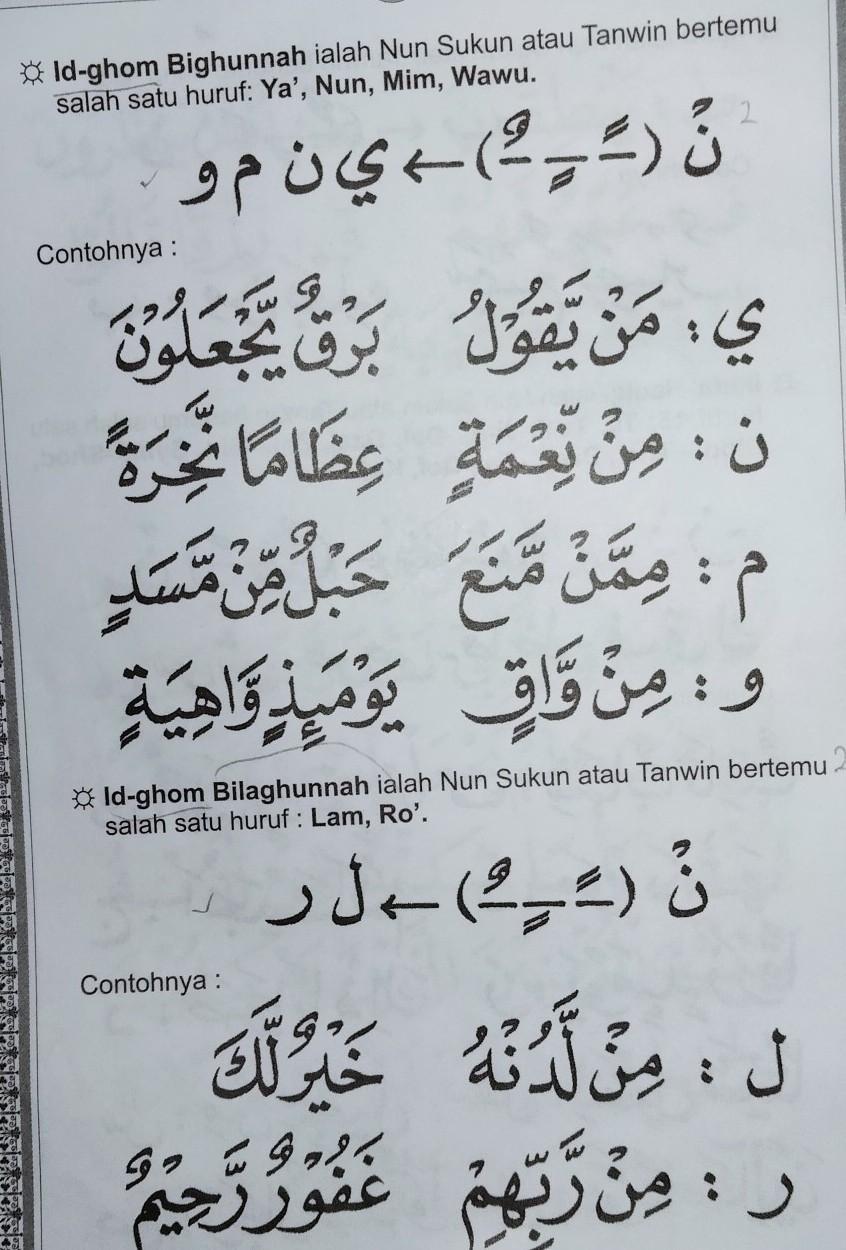 ☼ Id-ghom Bighunnah ialah Nun Sukun atau Tanwin bertemu
salah satu huruf: Ya’, Nun, Mim, Wawu.
نْ (ـًـ ـٍـ ـٌـ) ← ي ن م و
Contohnya :
ي : مَنْ يَّقُوْلُ بَرْقٌ يَّجْعَلُوْنَ
ن : مِنْ نِّعْمَةٍ عِظَامًا نَّخِرَةً
م : مِمَّنْ مَّنَعَ حَبْلٌ مِّنْ مَّسَدٍ
و : مِنْ وَّاقٍ يَوْمَىِٕذٍ وَّاهِيَةٍ
☼ Id-ghom Bilaghunnah ialah Nun Sukun atau Tanwin bertemu
salah satu huruf : Lam, Ro’.
نْ (ـًـ ـٍـ ـٌـ) ← ل ر
Contohnya :
ل : مِنْ لَّدُنْهُ خَيْرٌ لَّكَ
ر : مِنْ رَّبِّهِمْ غَفُوْرٌ رَّحِيْمٌ